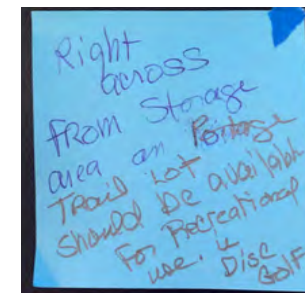 Right
across
From Storage
area on Portage
Trail Lot
should be available
For Recreational
use. is Disc
Golf